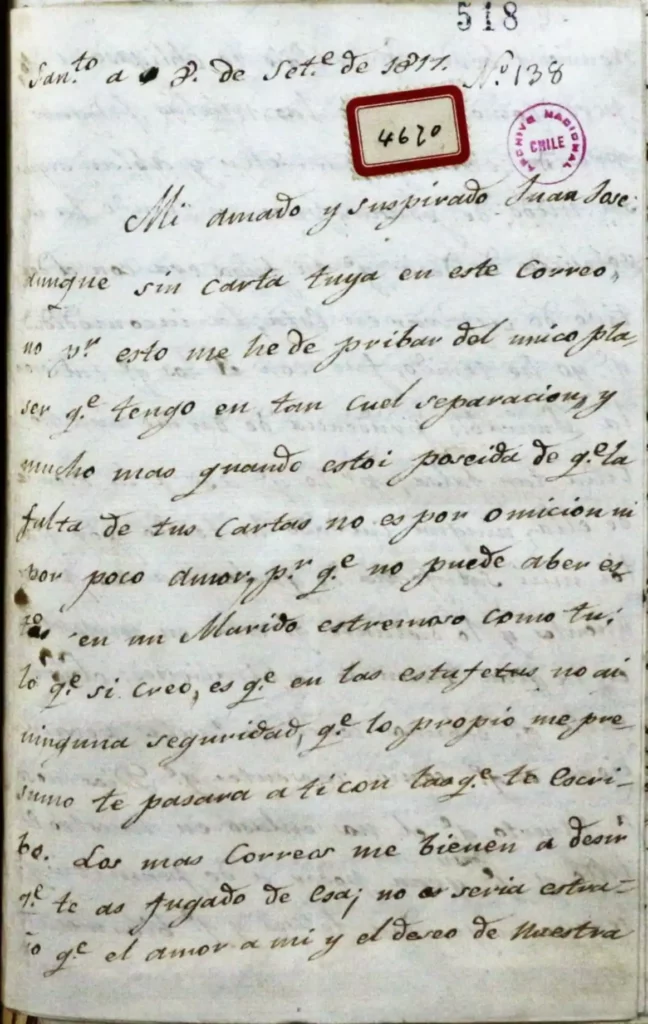 518
San.to a 8. de Set.e de 1817. N.o 138
4670
ARCHIVO NACIONAL
CHILE
Mi amado y suspirado Juan Jose
aunque sin carta tuya en este Correo,
no p.r esto me he de pribar del unico pla-
ser q.e tengo en, tan cuel separacion, y
mucho mas quando estoi poseida de q.e la
falta de tus Cartas no es por omicion ni
por poco amor, p.r q.e no puede aber es
to en un Marido estremoso como tu;
lo q.e si Creo, es q.e en las estafetas no ai
ninguna seguridad, q.e lo propio me pre
sumo te pasara a ti con las q.e te escri-
bo. Los mas Correos me bienen a desir
q.e te as fugado de esa; no seria estra-
ño q.e el amor a mi y el deseo de Nuestra